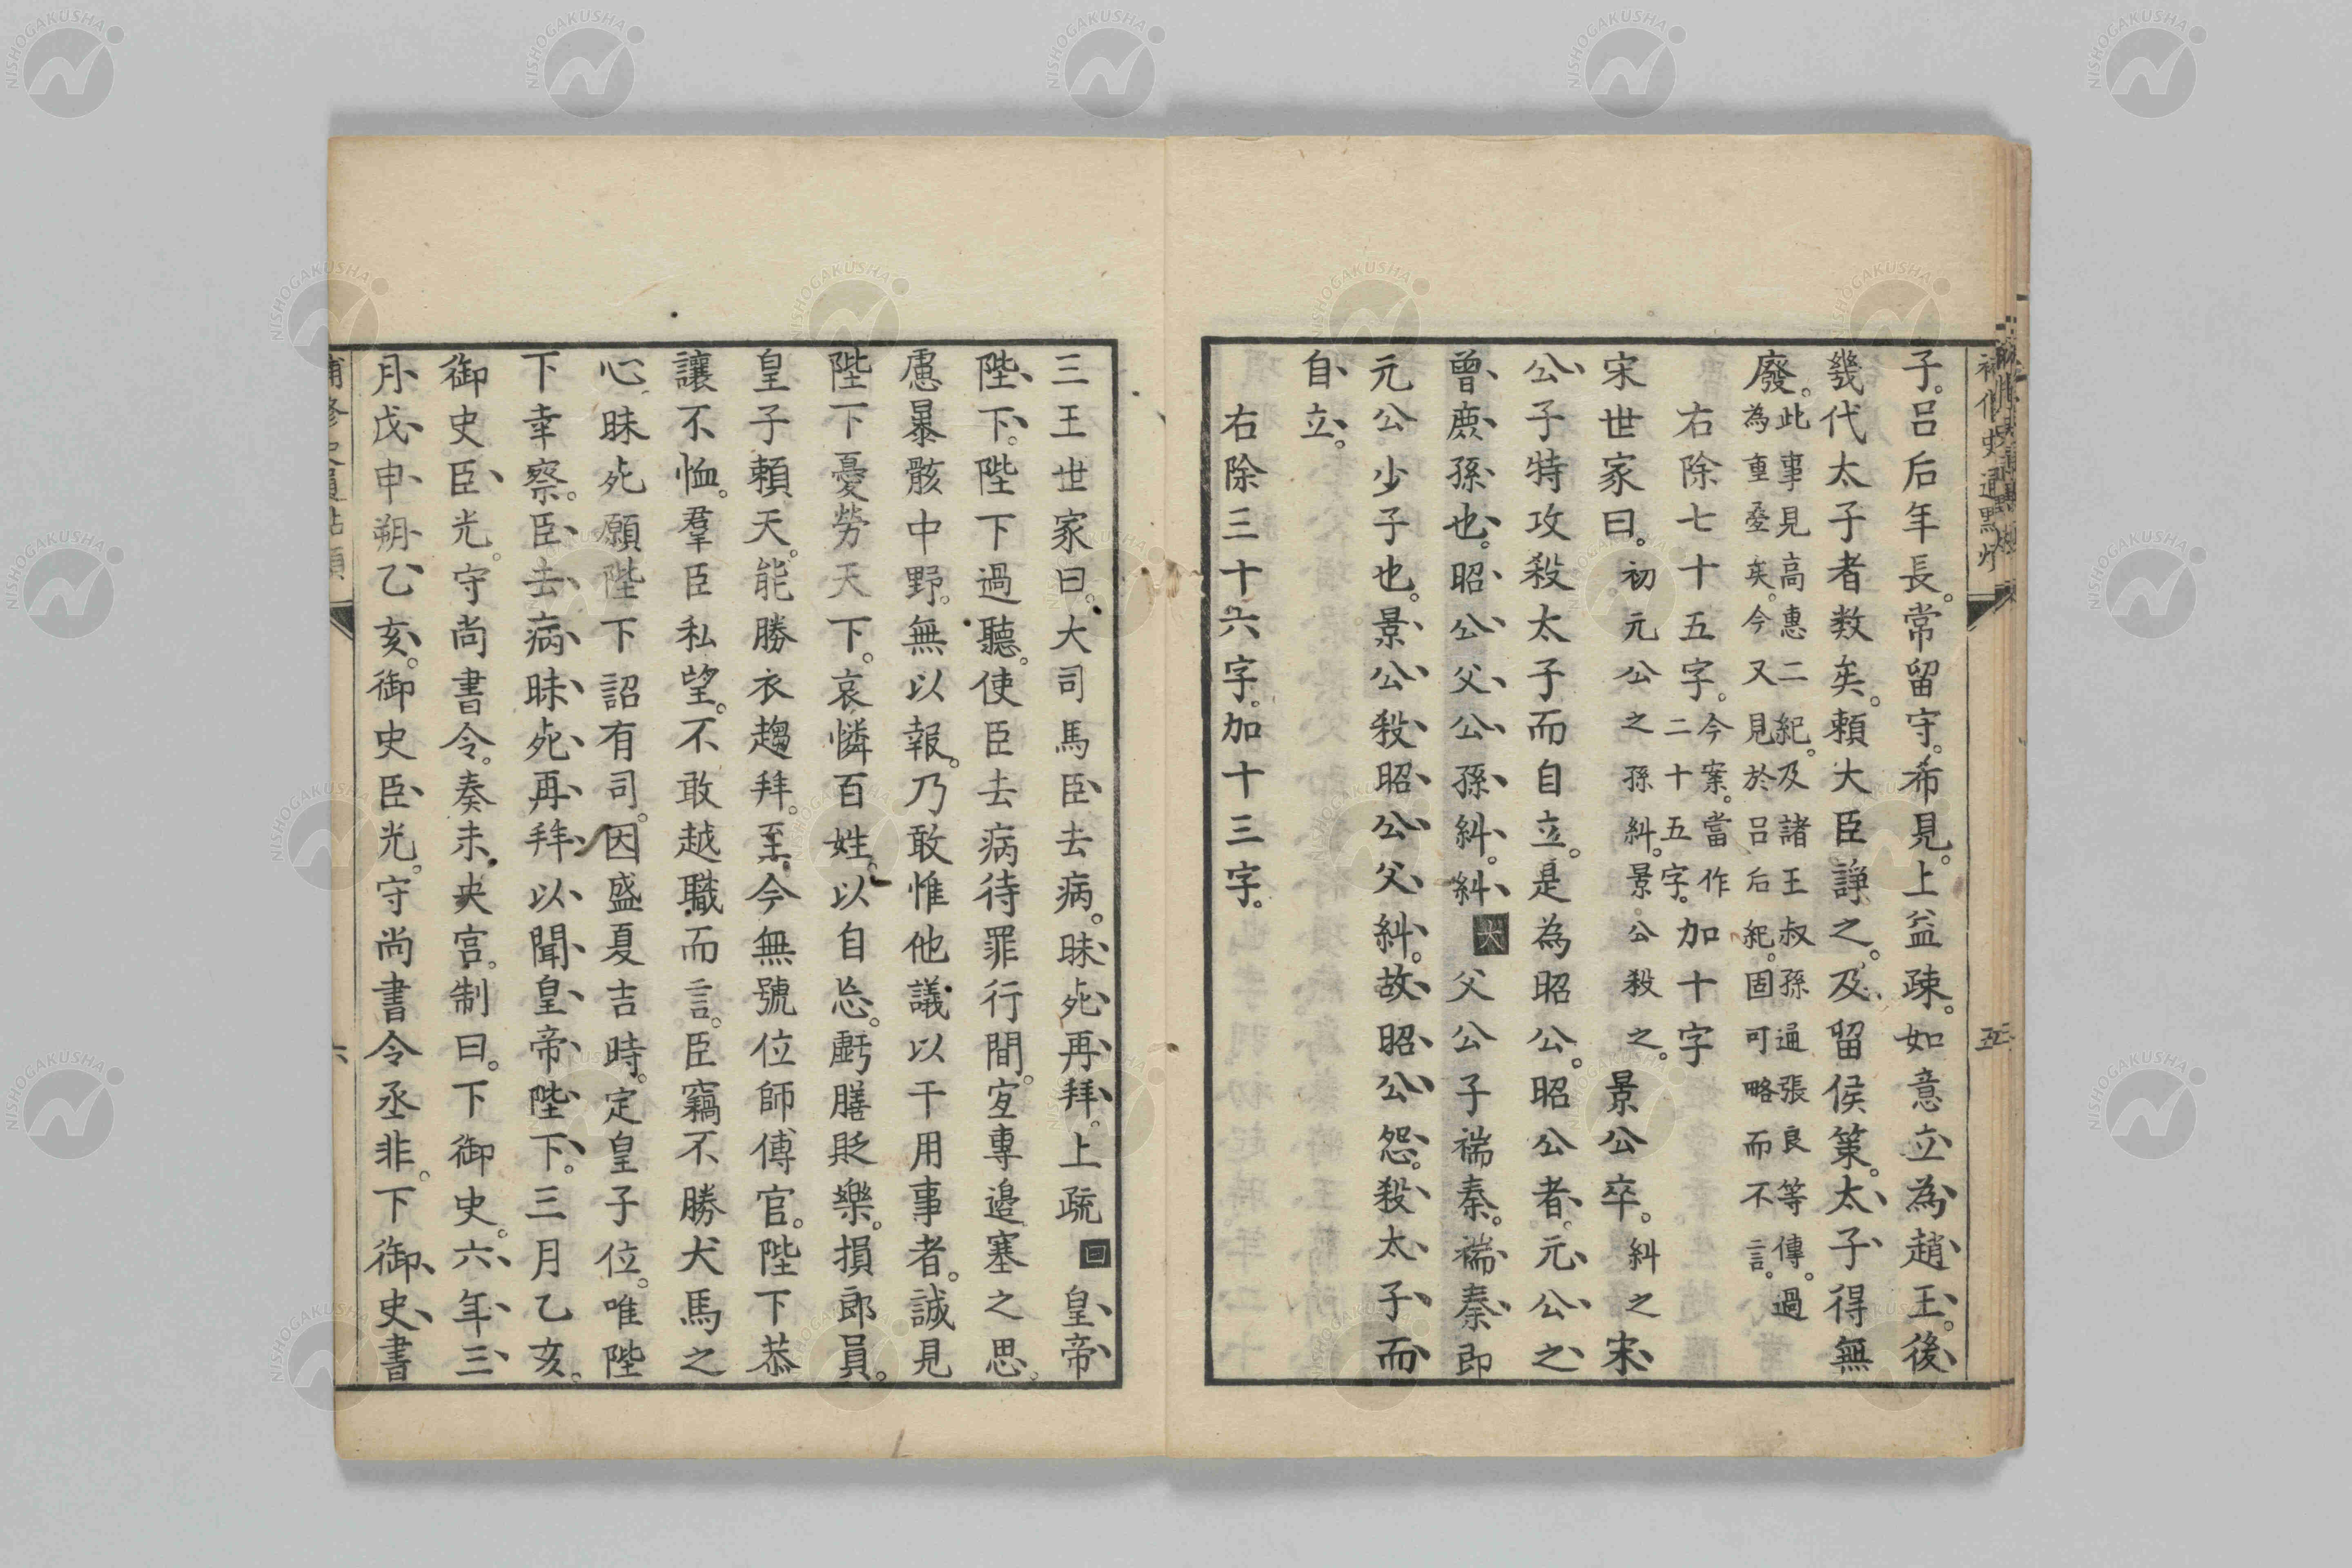 子。呂后年長。常留守。希見。上益疎。如意立為趙王。後
幾代太子者数矣。頼大臣諍之。及留侯策。太子得無
廢。此事見高惠二紀。及諸王叔孫通張良等傳。過
為重疊矣。今又見於呂后紀。固可略而不言。
右除七十五字。今案。當作二十五字。加十字
宋世家曰。初元公之孫糾。景公殺之。景公卒。糾之宋
公子特攻殺太子而自立。是為昭公。昭公者。元公之
曾庶孫也。昭公父公孫糾。糾大父公子褍秦。褍秦即
元公少子也。景公殺昭公父糾。故昭公怨。殺太子而
自立。
右除三十六字。加十三字。
五
三王世家曰。大司馬臣去病。昧死再拜。上疏曰皇帝
陛下。陛下過聽。使臣去病待罪行間。宜專邉塞之思
慮暴骸中野。無以報。乃敢惟他議以干用事者。誠見
陛下憂勞天下。哀憐百姓。以自忘。虧膳貶樂。損郎員。
皇子賴天。能勝衣趨拜。至今無號位師傅官。陛下恭
讓不恤。羣臣私望。不敢越職而言。臣竊不勝犬馬之
心昧死願陛下詔有司。因盛夏吉時。定皇子位。唯陛
下幸察。臣去病昧死再拜以聞皇帝陛下。三月乙亥。
御史臣光。守尚書令。奏未央宮。制曰。下御史。六年三
月戊申朔乙亥。御史臣光。守尚書令丞非。下御史書
六